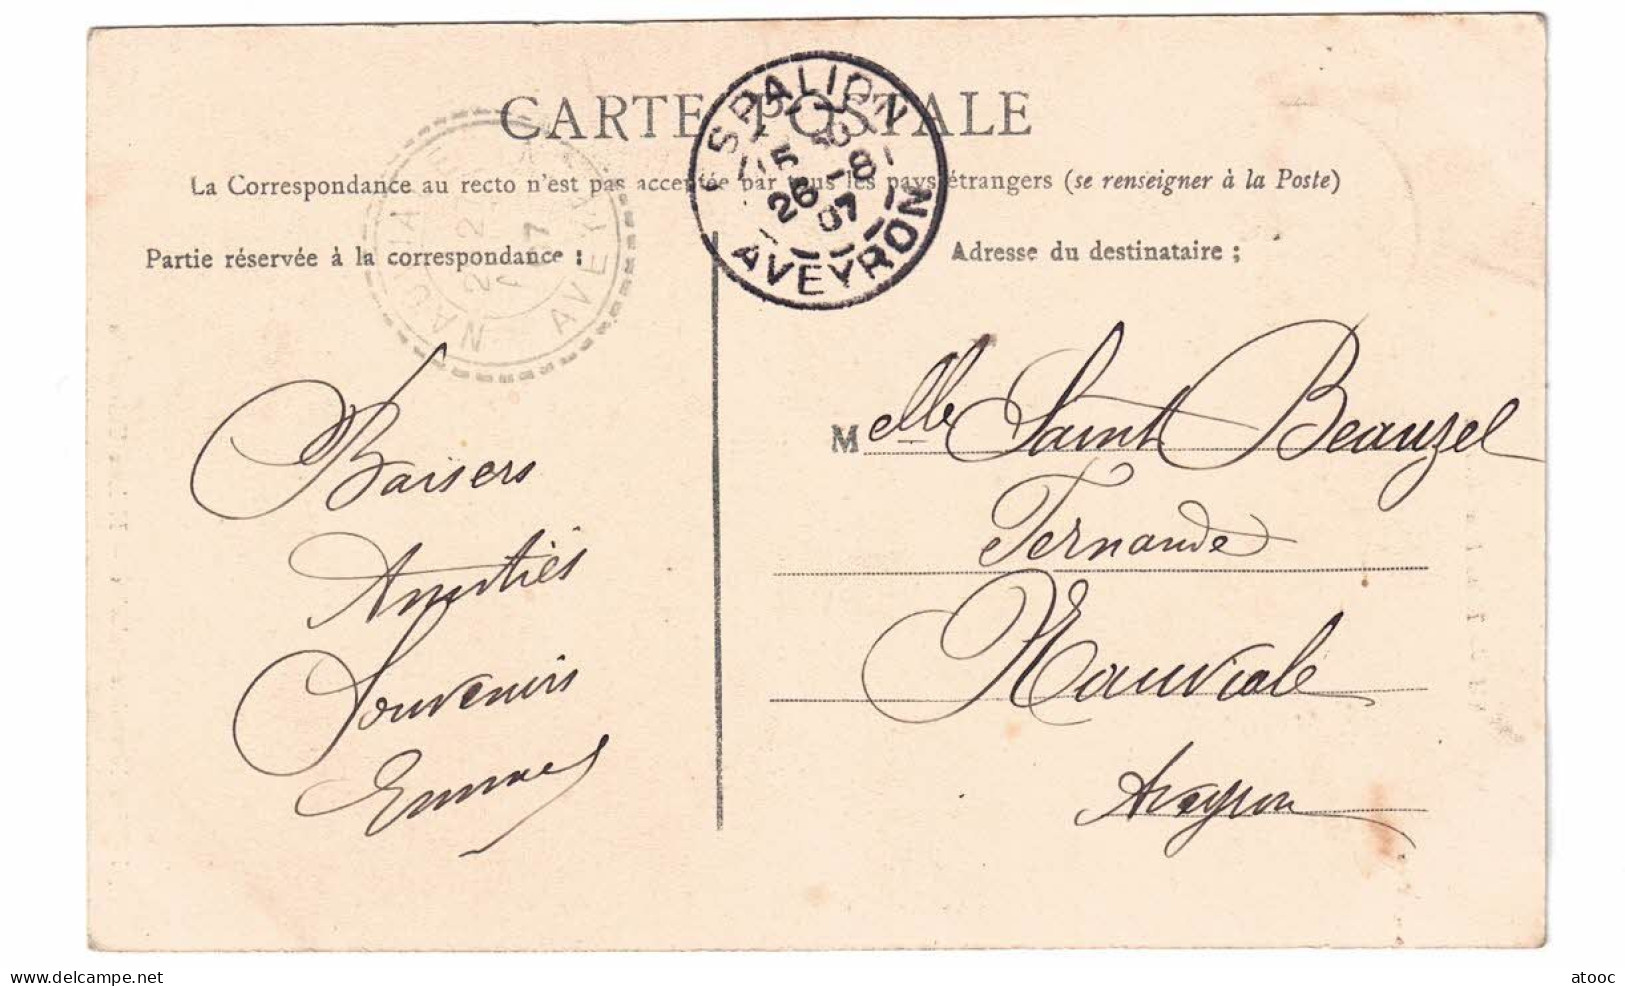 CARTE POSTALE
La Correspondance au recto n'est pas acceptée par tous les pays étrangers (se renseigner à la Poste)
Partie réservée à la correspondance :
Adresse du destinataire ;
ESPALION
15 26 -8 07
AVEYRON
NAUVIALE
AVEYRON
Baisers
Amitiés
Souvenirs
Melle Saint Beauzel
Fernande
Nauviale
Aveyron
www.delcampe.net
atooc